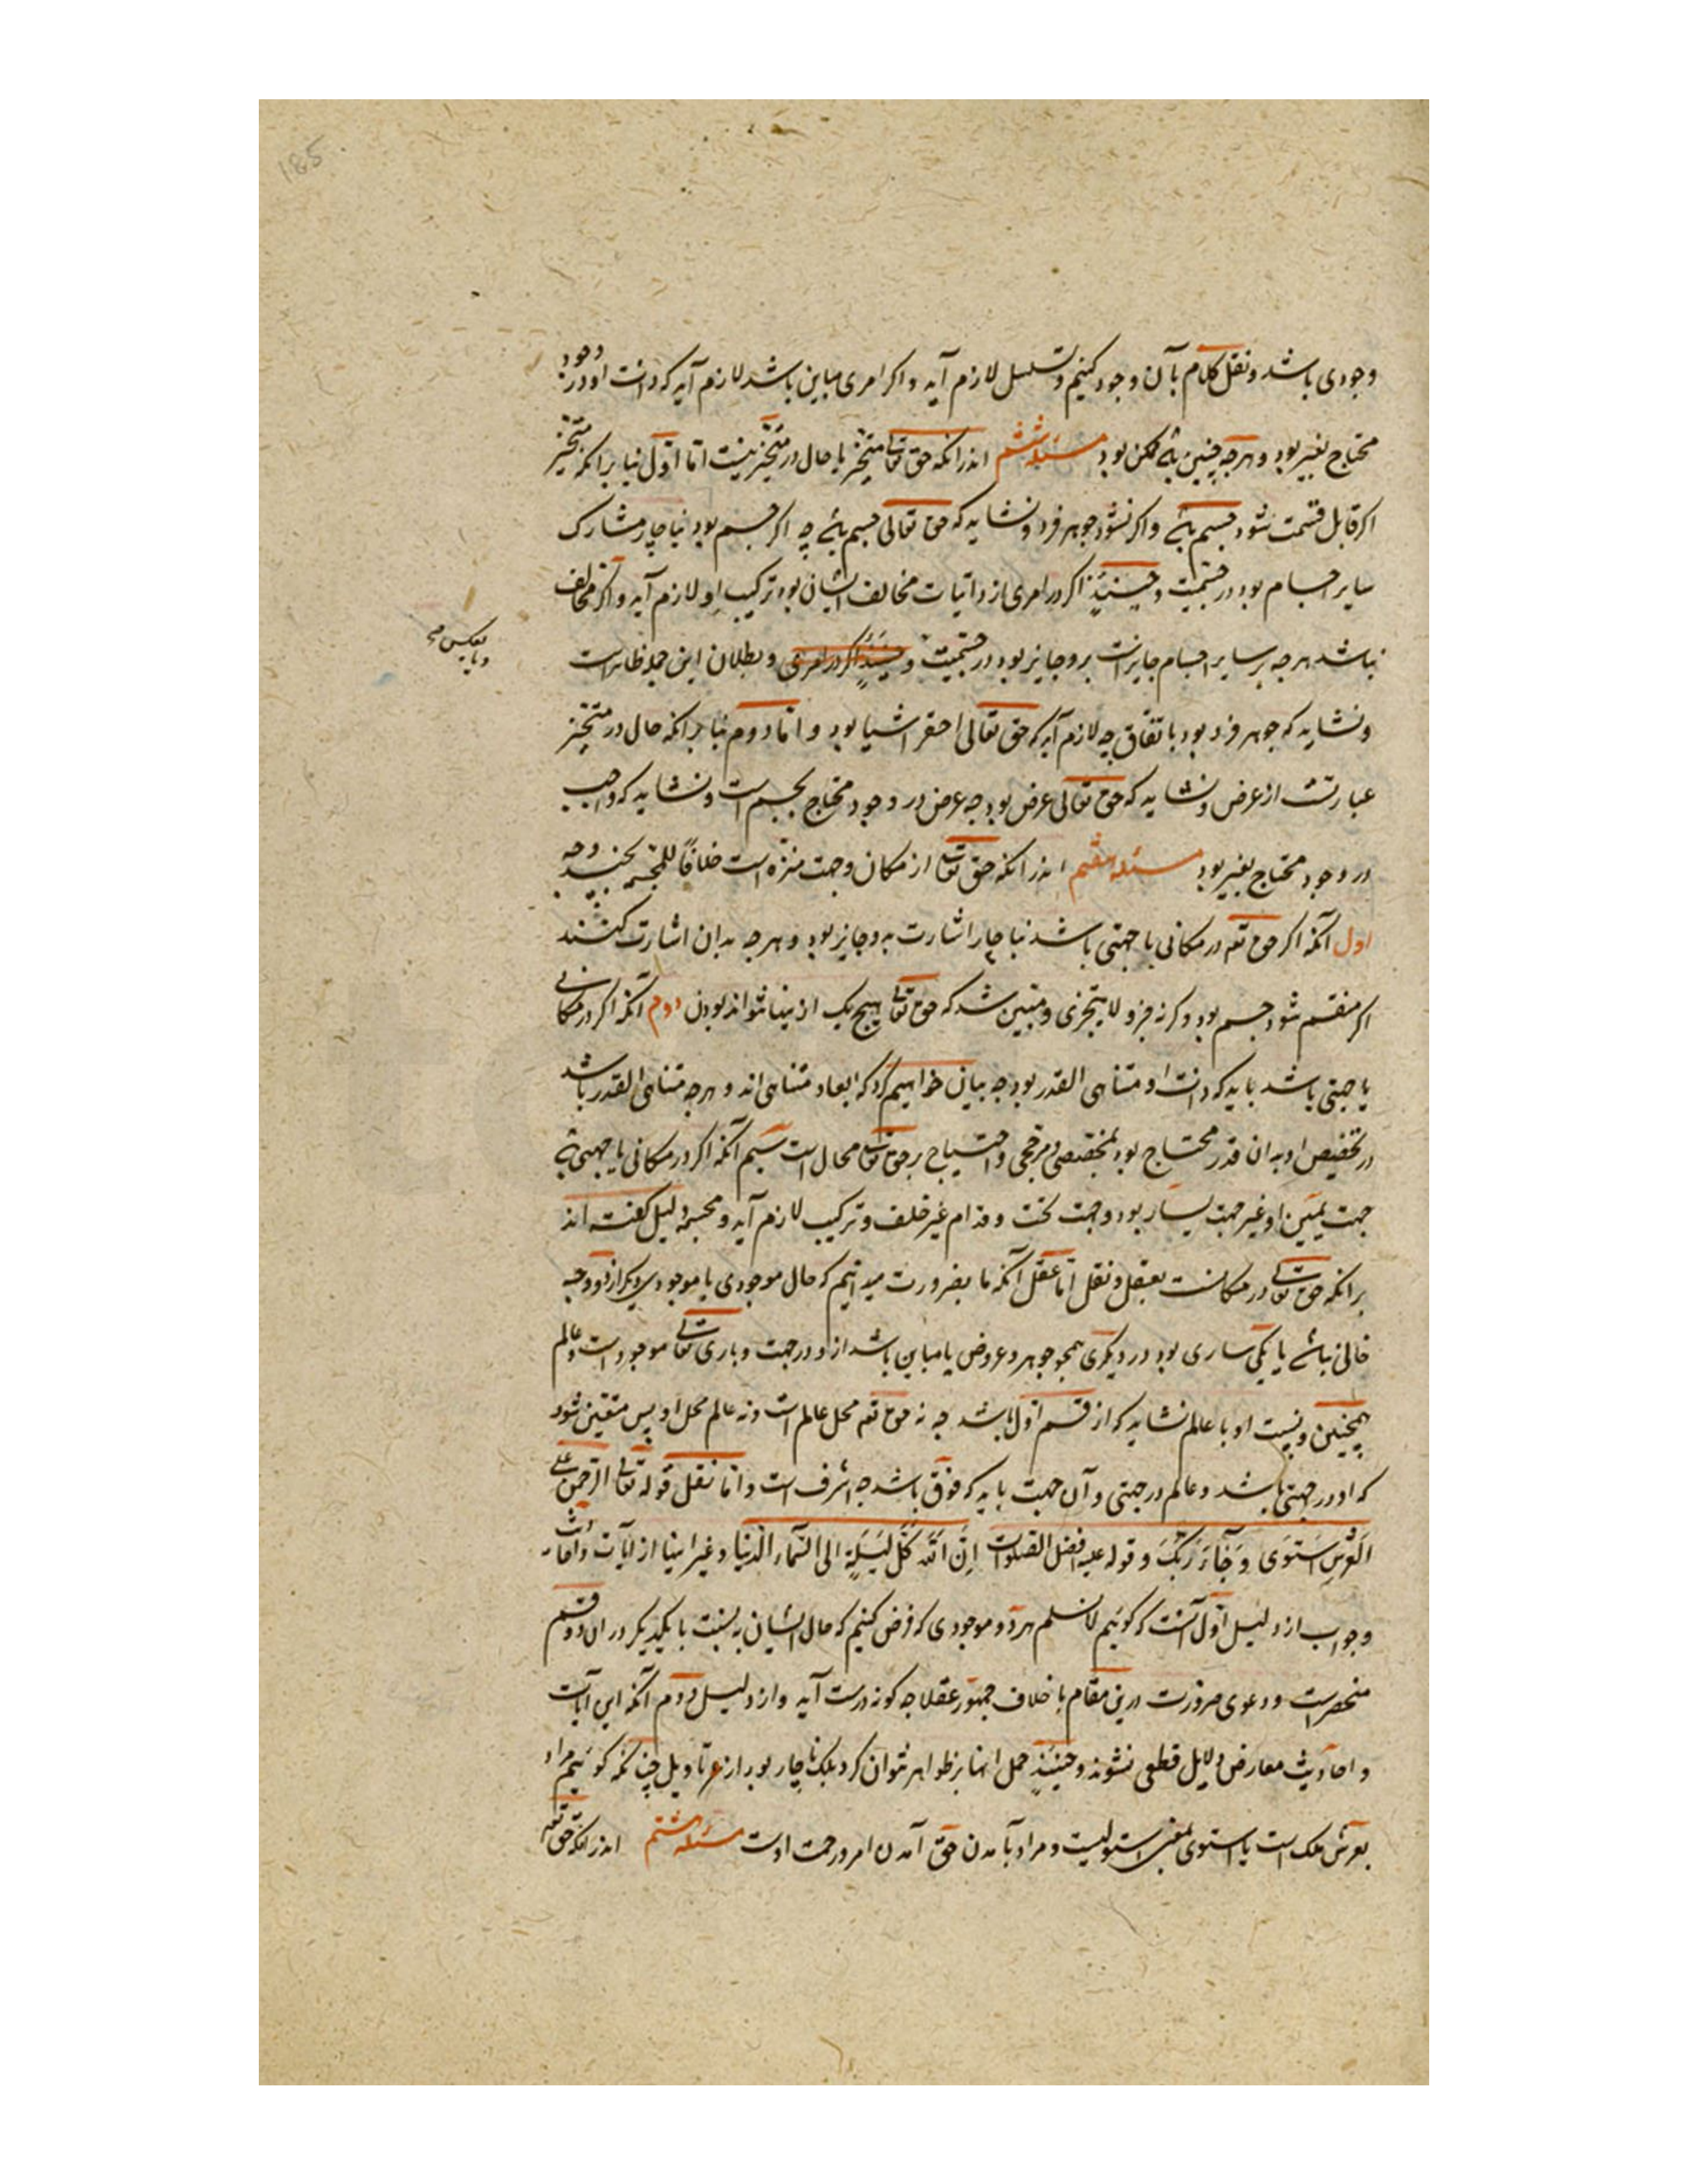 185
وجودی باشد و نقل کلام بآن وجود کنیم و تسلسل لازم آید و اکر امری مباین باشد لازم آید که ذات او در وجود
محتاج بغیر بود و هرچه چنین باشد ممکن بود مسئله ششم اندر انکه حق تعالی متحیز یا حال در متحیز نیست اما اول بنا برانکه متحیز
اکر قابل قسمت شود جسم باشد و اکر نشود جوهر فرد و نشاید که حق تعالی جسم باشد چه اکر جسم بود ناچار مشارک
سایر اجسام بود در جسمیت و حینئذٍ اکر در امری از ذاتیات مخالف ایشان بود ترکیب او لازم آید و اکر مخالف
نباشد هرچه بر سایر اجسام جایز است برو جایز بود در جسمیت و حینئذٍ اکر در امری و بطلان این جمله ظاهر است
و بالعکس صح
و نشاید که جوهر فرد بود باتفاق چه لازم آید که حق تعالی احقر اشیا بود و اما دوم بنا برانکه حال در متحیز
عبارتست از عرض و نشاید که حق تعالی عرض بود چه عرض در وجود محتاج بجسم است و نشاید که واجب
در وجود محتاج بغیر بود مسئله هفتم اندر انکه حق تعالی از مکان و جهت منزه است خلافاً للمجسمه بچند وجه
اول آنکه اکر حق تعه در مکانی یا جهتی باشد ناچار اشارت بدو جایز بود و هرچه بدان اشارت کنند
اکر منقسم شود جسم بود و کرنه جزو لا یتجزی و مبین شد که حق تعالی هیچ یک ازینها نتواند بودن دوم آنکه اکر در مکانی
یا جهتی باشد باید که ذات او متناهی القدر بود چه بیان خواهیم کرد که ابعاد متناهی اند و هرچه متناهی القدر باشد
در تخصیص او بدان قدر محتاج بود بمخصصی و مرجحی و احتیاج بر حق تعالی محال است سیم آنکه اکر در مکانی یا جهتی باشد
جهت یمین او غیر جهت یسار بود و جهت تحت و قدام غیر خلف و ترکیب لازم آید و مجسمه دلیل کفته اند
برانکه حق تعالی در مکانست بعقل و نقل اما عقل آنکه ما بضرورت میدانیم که حال موجودی با موجودی دیکر از دو وجه
خالی نباشد یا یکی ساری بود در دیکری همچو جوهر و عرض یا مباین باشد ازو در جهت و باری تعالی موجود است و عالم
همچنین و نسبت او با عالم نشاید که از قسم اول باشد چه نه حق تعه محل عالم است و نه عالم محل او پس متعین شود
که او در جهتی باشد و عالم در جهتی و آن جهت باید که فوق باشد چه اشرف است و اما نقل قوله تعالی الرحمن علی
العرش استوی و جاء ربک و قوله علیه افضل الصلوات ان الله کل لیلة الی السماء الدنیا و غیر اینها از آیات و احادیث
و جواب از دلیل اول آنست که کوئیم لا نسلم هر دو موجودی که فرض کنیم که حال ایشان به نسبت با یکدیکر در ان دو قسم
منحصر است و دعوی ضرورت درین مقام با خلاف جمهور عقلا چه کونه درست آید و از دلیل دوم آنکه این آیات
و احادیث معارض دلایل قطعی نشوند و حینئذٍ حمل انها بر ظواهر نتوان کرد بلک ناچار بود از تاویل چنانکه کوئیم مراد
بعرش ملک است یا استوی بمعنی استولیست و مراد بآمدن حق آمدن امر و رحمت اوست مسئله هشتم اندر انکه حق تعه